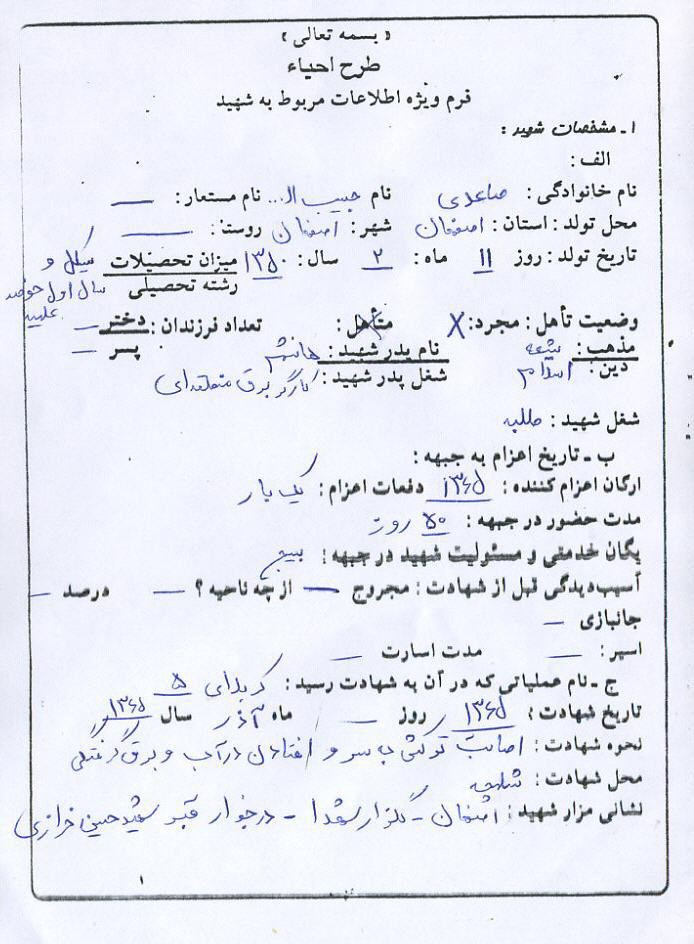 « بسمه تعالی »
طرح احیاء
فرم ویژه اطلاعات مربوط به شهید
۱ ـ مشخصات شهید :
الف :
نام خانوادگی : صاعدی نام حبیب ا... نام مستعار : —
محل تولد : استان : اصفهان شهر : اصفهان روستا : —
تاریخ تولد : روز ۱۱ ماه : ۲ سال : ۱۳۵۰ میزان تحصیلات سیکل و
رشته تحصیلی سال اول حوزه
علمیه
وضعیت تأهل : مجرد : X متأهل : تعداد فرزندان : دختر —
مذهب : شیعه نام پدر شهید : هاشم پسر —
دین : اسلام شغل پدر شهید : کارگر برق منطقه‌ای
شغل شهید : طلبه
ب ـ تاریخ اعزام به جبهه :
ارگان اعزام کننده : ۱۳۶۵ دفعات اعزام : یک بار
مدت حضور در جبهه : ۵۰ روز
یگان خدمتی و مسئولیت شهید در جبهه : بسیج
آسیب‌دیدگی قبل از شهادت : مجروح — از چه ناحیه ؟ — درصد —
جانبازی —
اسیر : — مدت اسارت —
ج ـ نام عملیاتی که در آن به شهادت رسید : کربلای ۵
تاریخ شهادت : ۱۳۶۵ روز — ماه آذر سال ۱۳۶۵
نحوه شهادت : اصابت ترکش به سر و افتادن در آب و برق گرفتگی
محل شهادت : شلمچه
نشانی مزار شهید : اصفهان - گلزار شهدا - در جوار قبر شهید حسین خرازی
۱